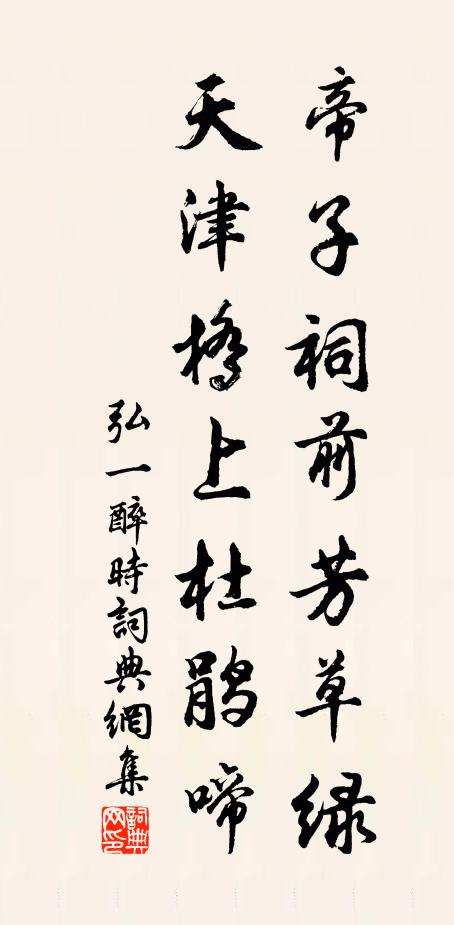 帝子祠前芳草绿
天津橋上杜鹃啼
弘一醉時詞典網集
詞典网印